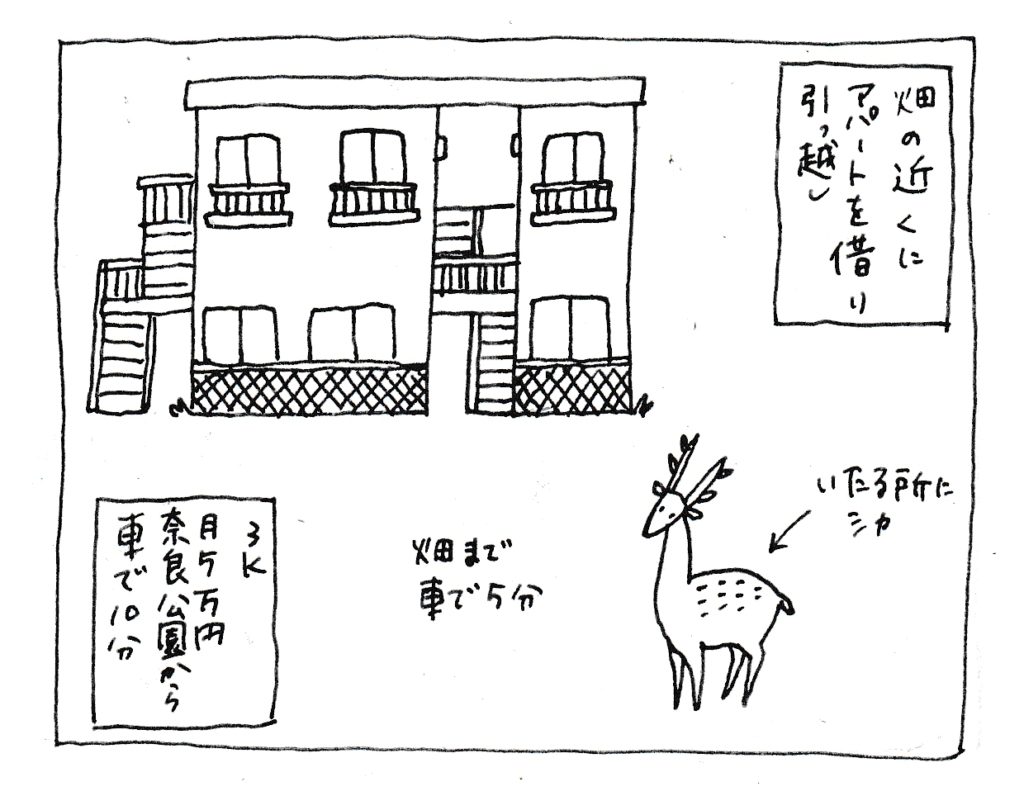 畑の近くに
アパートを借り
引っ越し
いたる所に
シカ
畑まで
車で5分
3K
月5万円
奈良公園から
車で10分